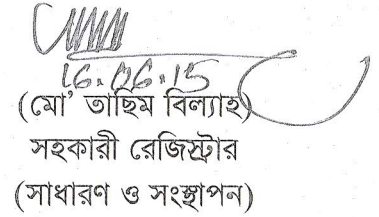 16.06.15
(মো' তাছিম বিল্যাহ)
সহকারী রেজিস্ট্রার
(সাধারণ ও সংস্থাপন)